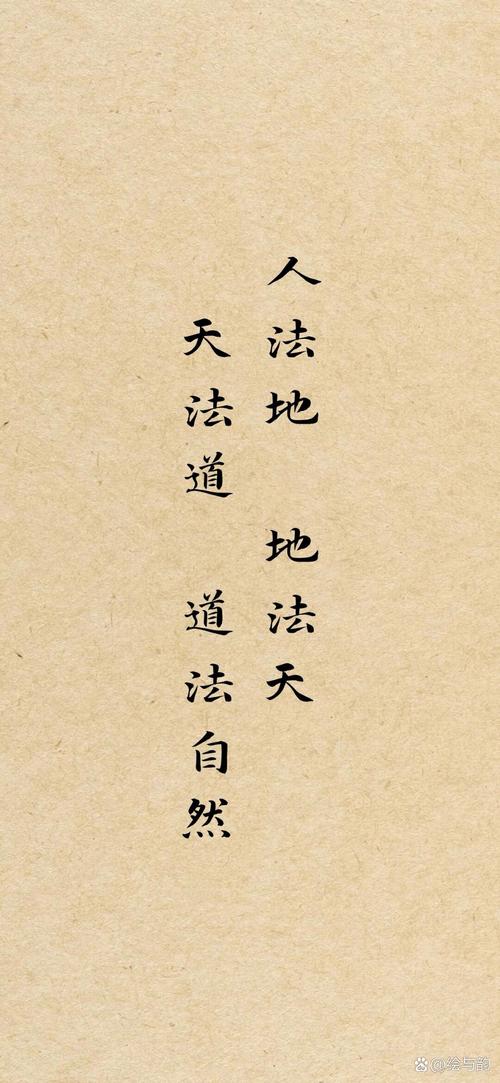 人法地 地法天
天法道 道法自然
@绘与韵